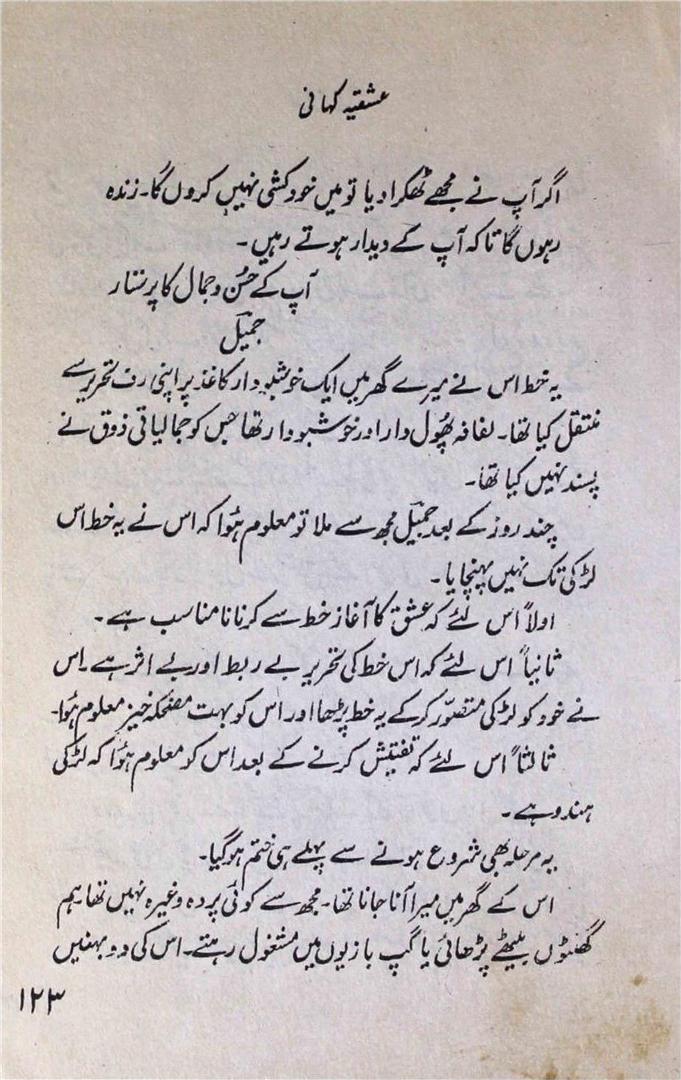 عشقیہ کہانی
اگر آپ نے مجھے ٹھکرا دیا تو میں خودکشی نہیں کروں گا۔ زندہ
رہوں گا تاکہ آپ کے دیدار ہوتے رہیں۔
آپ کے حُسن و جمال کا پرستار
جمیل
یہ خط اس نے میرے گھر میں ایک خوشبودار کاغذ پر اپنی رف تحریر سے
منتقل کیا تھا۔ لفافہ پھُول دار اور خوشبودار تھا جس کو جمالیاتی ذوق نے
پسند نہیں کیا تھا۔
چند روز کے بعد جمیل مجھ سے ملا تو معلوم ہُوا کہ اس نے یہ خط اس
لڑکی تک نہیں پہنچایا۔
اولاً اس لئے کہ عشق کا آغاز خط سے کرنا نامناسب ہے۔
ثانیاً اس لئے کہ اس خط کی تحریر بے ربط اور بے اثر ہے۔ اس
نے خود کو لڑکی متصوّر کر کے یہ خط پڑھا اور اس کو بہت مضحکہ خیز معلوم ہُوا۔
ثالثاً اس لئے کہ تفتیش کرنے کے بعد اس کو معلوم ہُوا کہ لڑکی
ہندو ہے۔
یہ مرحلہ بھی شروع ہونے سے پہلے ہی ختم ہو گیا۔
اس کے گھر میں میرا آنا جانا تھا۔ مجھ سے کوئی پردہ وغیرہ نہیں تھا۔ ہم
گھنٹوں بیٹھے پڑھائی یا گپ بازیوں میں مشغول رہتے۔ اس کی دو بہنیں
۱۲۳